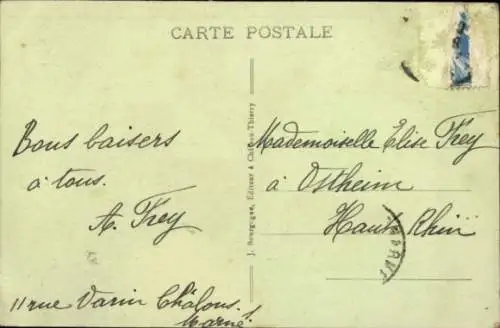 CARTE POSTALE
Bons baisers
à tous.
A. Frey
11 rue Varin Châlons s.
Marne
J. Bourgogne, Éditeur à Château-Thierry
Mademoiselle Elise Frey
à Ostheim
Haut-Rhin